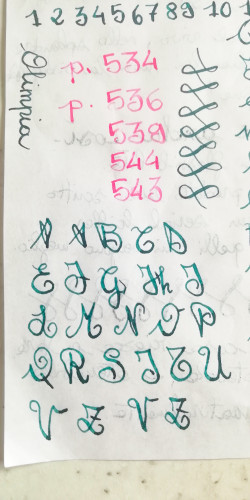 1 2 3 4 5 6 7 8 9 10 1
Olimpia
p. 534
p. 536
539
544
543
A A B C D
E F G H I
L M N O P
Q R S T U
V Z V Z